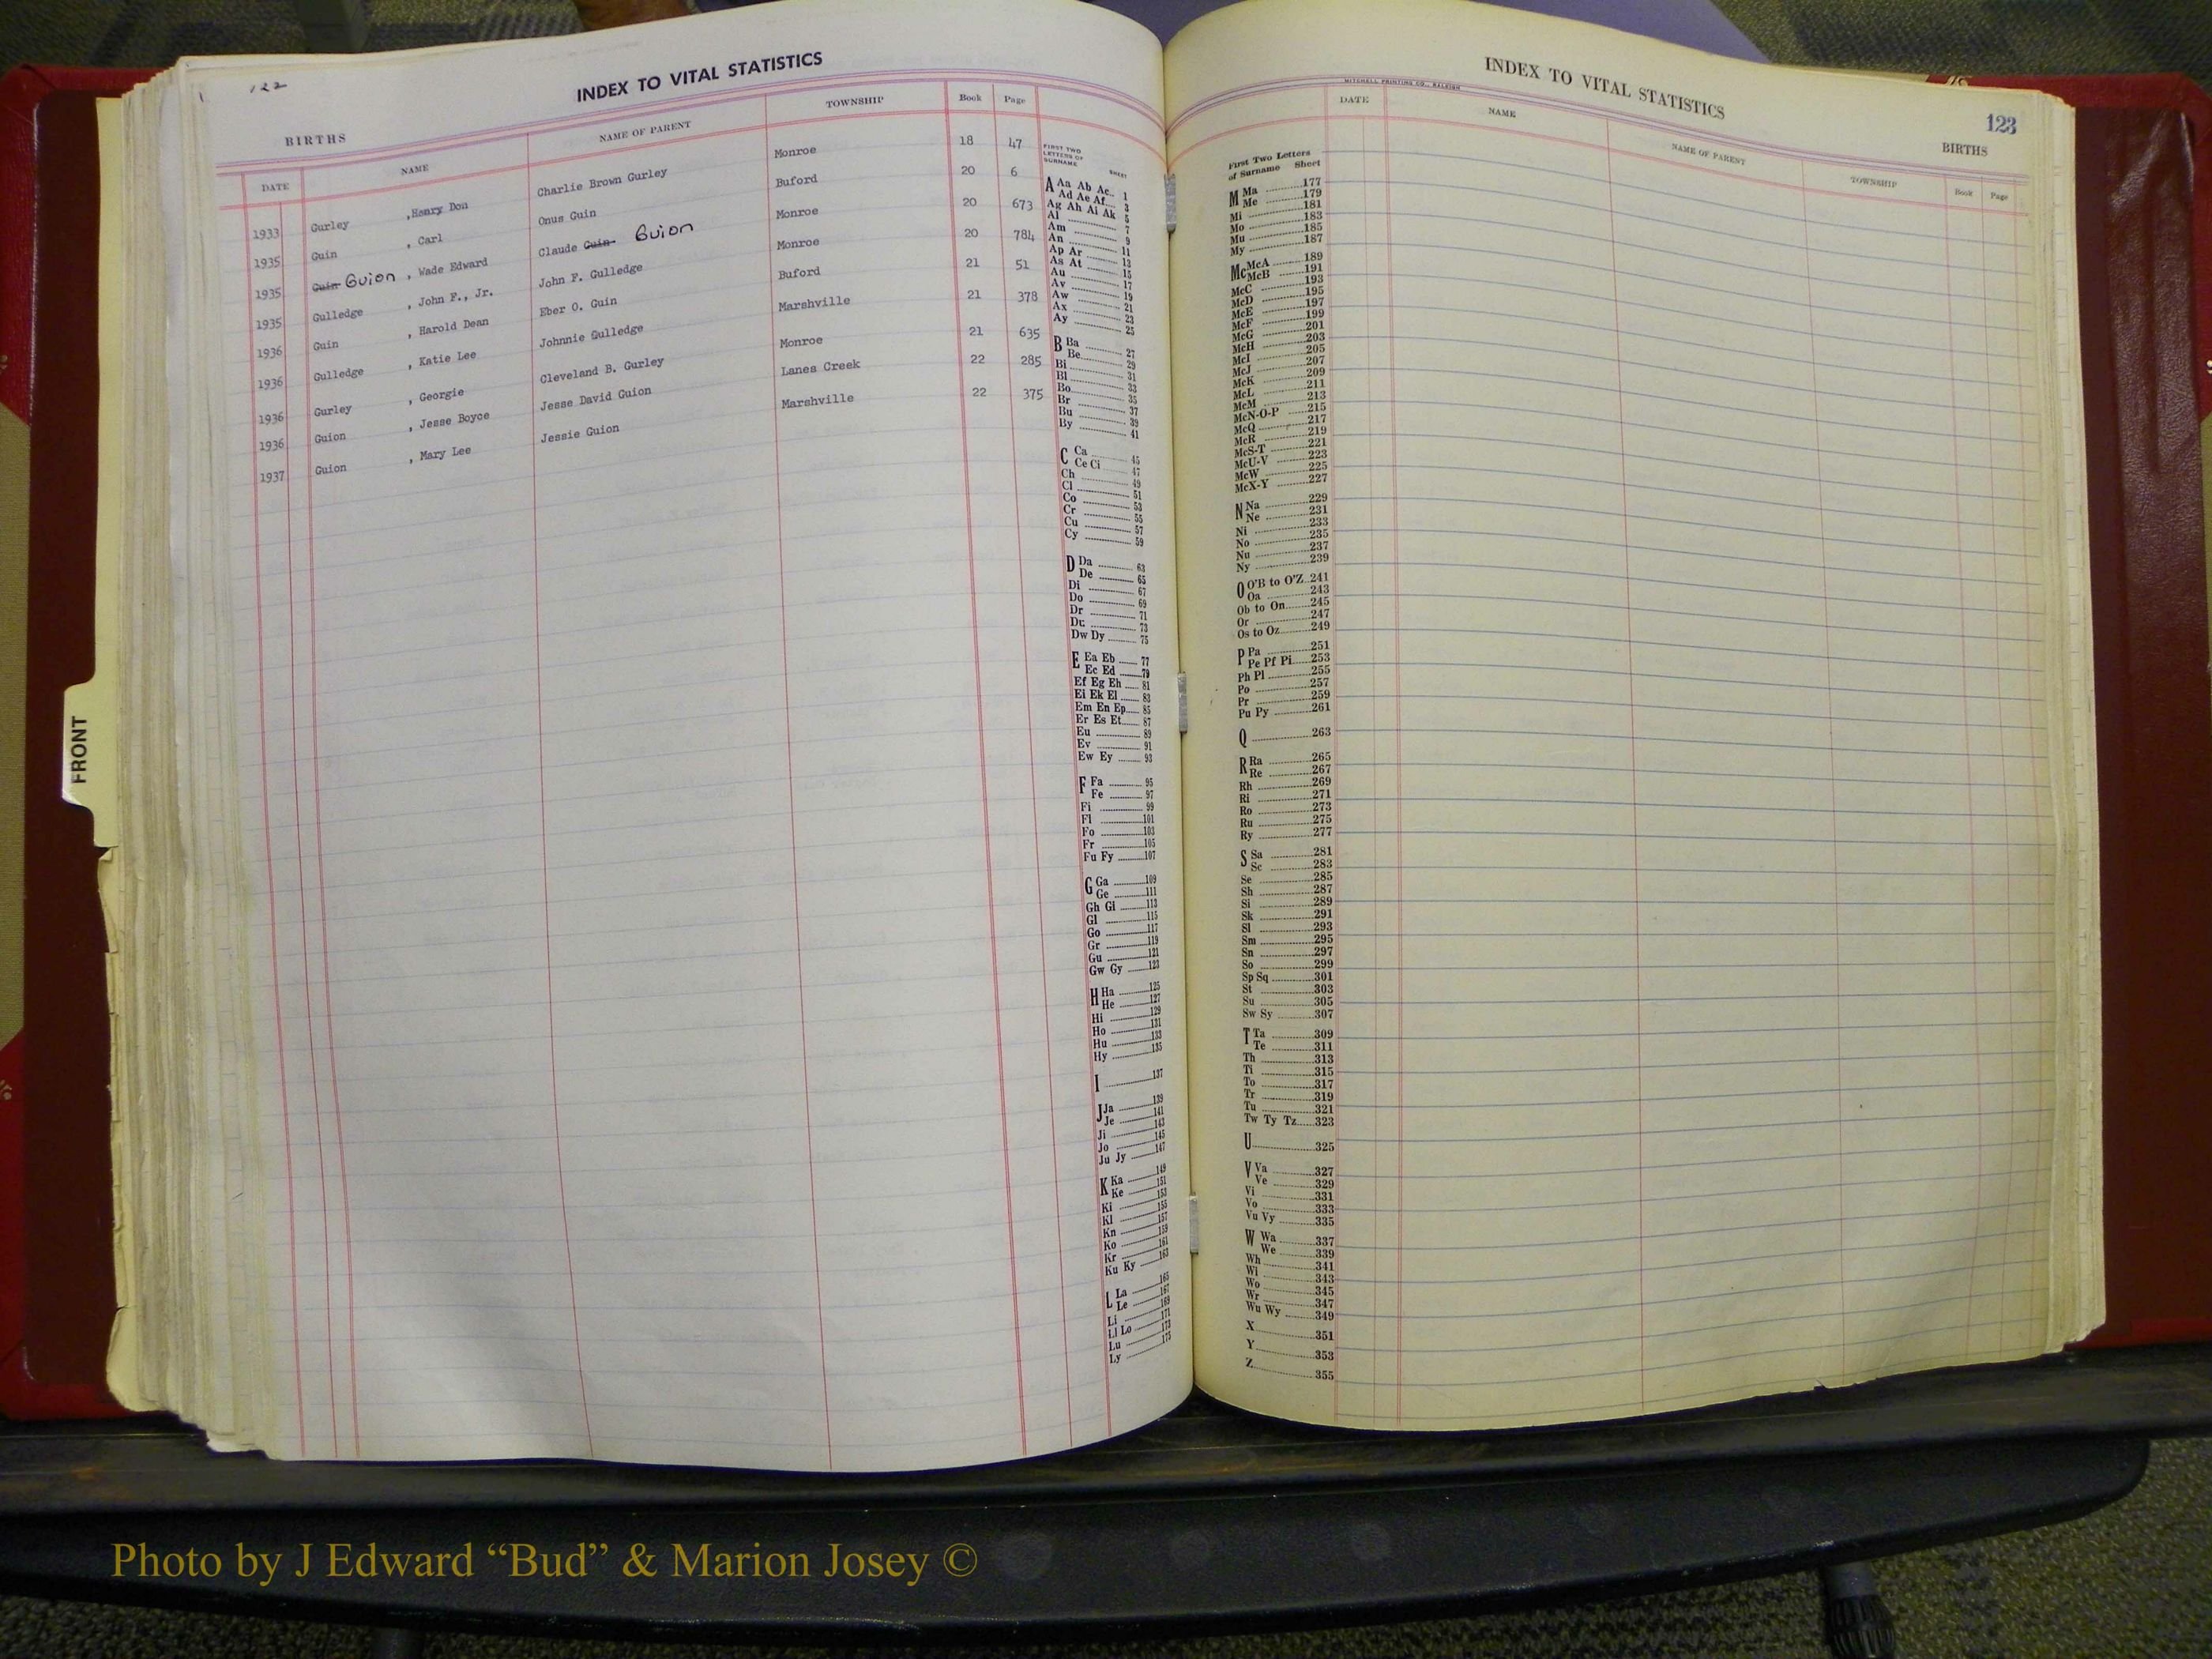 122
INDEX TO VITAL STATISTICS
BIRTHS
DATE NAME NAME OF PARENT TOWNSHIP Book Page
1933 Gurley ,Henry Don Charlie Brown Gurley Monroe 18 47
1935 Guin , Carl Onus Guin Buford 20 6
1935 Guin Guion , Wade Edward Claude Guin Guion Monroe 20 673
1935 Gulledge , John F., Jr. John F. Gulledge Monroe 20 784
1936 Guin , Harold Dean Eber O. Guin Buford 21 51
1936 Gulledge , Katie Lee Johnnie Gulledge Marshville 21 378
1936 Gurley , Georgie Cleveland B. Gurley Monroe 21 635
1936 Guion , Jesse Boyce Jesse David Guion Lanes Creek 22 285
1937 Guion , Mary Lee Jessie Guion Marshville 22 375
FIRST TWO
LETTERS OF
SURNAME SHEET
A Aa Ab Ac 1
Ad Ae Af 3
Ag Ah Ai Ak 5
Al 7
Am 9
An 11
Ap Ar 13
As At 15
Au 17
Av 19
Aw 21
Ax 23
Ay 25
B Ba 27
Be 29
Bi 31
Bl 33
Bo 35
Br 37
Bu 39
By 41
C Ca 45
Ce Ci 47
Ch 49
Cl 51
Co 53
Cr 55
Cu 57
Cy 59
D Da 63
De 65
Di 67
Do 69
Dr 71
Du 73
Dw Dy 75
E Ea Eb 77
Ec Ed 79
Ef Eg Eh 81
Ei Ek El 83
Em En Ep 85
Er Es Et 87
Eu 89
Ev 91
Ew Ey 93
F Fa 95
Fe 97
Fi 99
Fl 101
Fo 103
Fr 105
Fu Fy 107
G Ga 109
Ge 111
Gh Gi 113
Gl 115
Go 117
Gr 119
Gu 121
Gw Gy 123
H Ha 125
He 127
Hi 129
Ho 131
Hu 133
Hy 135
I 137
J Ja 139
Je 141
Ji 143
Jo 145
Ju Jy 147
K Ka 149
Ke 151
Ki 153
Kl 155
Kn 157
Ko 159
Kr 161
Ku Ky 163
L La 165
Le 167
Li 169
Ll Lo 171
Lu 173
Ly 175
FRONT
INDEX TO VITAL STATISTICS
MITCHELL PRINTING CO., RALEIGH
123
BIRTHS
DATE NAME NAME OF PARENT TOWNSHIP Book Page
First Two Letters
of Surname Sheet
M Ma 177
Me 179
Mi 181
Mo 183
Mu 185
My 187
Mc McA 189
McB 191
McC 193
McD 195
McE 197
McF 199
McG 201
McH 203
McI 205
McJ 207
McK 209
McL 211
McM 213
McN-O-P 215
McQ 217
McR 219
McS-T 221
McU-V 223
McW 225
McX-Y 227
N Na 229
Ne 231
Ni 233
No 235
Nu 237
Ny 239
O O'B to O'Z 241
Oa 243
Ob to On 245
Or 247
Os to Oz 249
P Pa 251
Pe Pf Pi 253
Ph Pl 255
Po 257
Pr 259
Pu Py 261
Q 263
R Ra 265
Re 267
Rh 269
Ri 271
Ro 273
Ru 275
Ry 277
S Sa 281
Sc 283
Se 285
Sh 287
Si 289
Sk 291
Sl 293
Sm 295
Sn 297
So 299
Sp Sq 301
St 303
Su 305
Sw Sy 307
T Ta 309
Te 311
Th 313
Ti 315
To 317
Tr 319
Tu 321
Tw Ty Tz 323
U 325
V Va 327
Ve 329
Vi 331
Vo 333
Vu Vy 335
W Wa 337
We 339
Wh 341
Wi 343
Wo 345
Wr 347
Wu Wy 349
X 351
Y 353
Z 355
Photo by J Edward “Bud” & Marion Josey ©